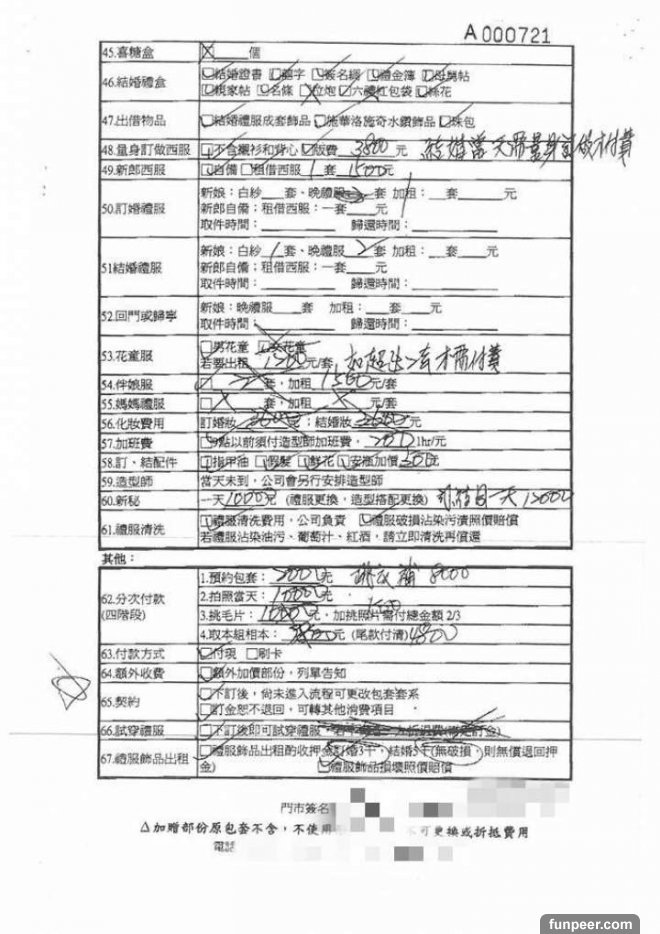 A 000721
45.喜糖盒 個
46.結婚禮盒 結婚證書 囍字 簽名綢 禮金簿 母舅帖
親家帖 名條 拉炮 六禮紅包袋 絲花
47.出借物品 結婚禮服成套飾品 施華洛施奇水鑽飾品 珠包
48.量身訂做西服 不含襯衫和背心 版費 3800 元
49.新郎西服 自備 租借西服 1 套 1500元
50.訂婚禮服 新娘：白紗 套、晚禮服 套 加租： 套 元
新郎自備；租借西服：一套 元
取件時間： 歸還時間：
51結婚禮服 新娘：白紗 1 套、晚禮服 2 套 加租： 套 元
新郎自備；租借西服：一套 元
取件時間： 歸還時間：
52.回門或歸寧 新娘：晚禮服 套 加租： 套 元
取件時間： 歸還時間：
53.花童服 男花童 女花童
若要出租 1200 元/套
54.伴娘服 套，加租 1500 元/套
55.媽媽禮服 套，加租 元/套
56.化妝費用 訂婚妝 元；結婚妝 元
57.加班費 9點以前須付造型師加班費， 1hr/元
58.訂、結配件 指甲油 假髮 鮮花 安瓶加價 500 元
59.造型師 當天未到，公司會另行安排造型師
60.新秘 一天10000元 (禮服更換，造型搭配更換) 一天 12000
61.禮服清洗 禮服清洗費用，公司負責 禮服破損沾染污漬照價賠償
若禮服沾染油污、葡萄汁、紅酒，請立即清洗再償還
其他：
62.分次付款 1.預約包套： 2000 元 8000
(四階段) 2.拍照當天： 10000 元
3.挑毛片： 10000 元，加挑照片需付總金額 2/3
4.取本組相本： 元 (尾款付清) 4800
63.付款方式 付現 刷卡
64.額外收費 額外加價部份，列單告知
65.契約 下訂後，尚未進入流程可更改包套套系
訂金恕不退回，可轉其他消費項目
66.試穿禮服 下訂後即可試穿禮服
67.禮服飾品出租 禮服飾品出租酌收押金(訂婚3千，結婚5千(無破損，則無償退回押
金) 禮服飾品損壞照價賠償
門市簽名
△加贈部份原包套不含，不使用 不可更換或折抵費用
電話
funpeer.com